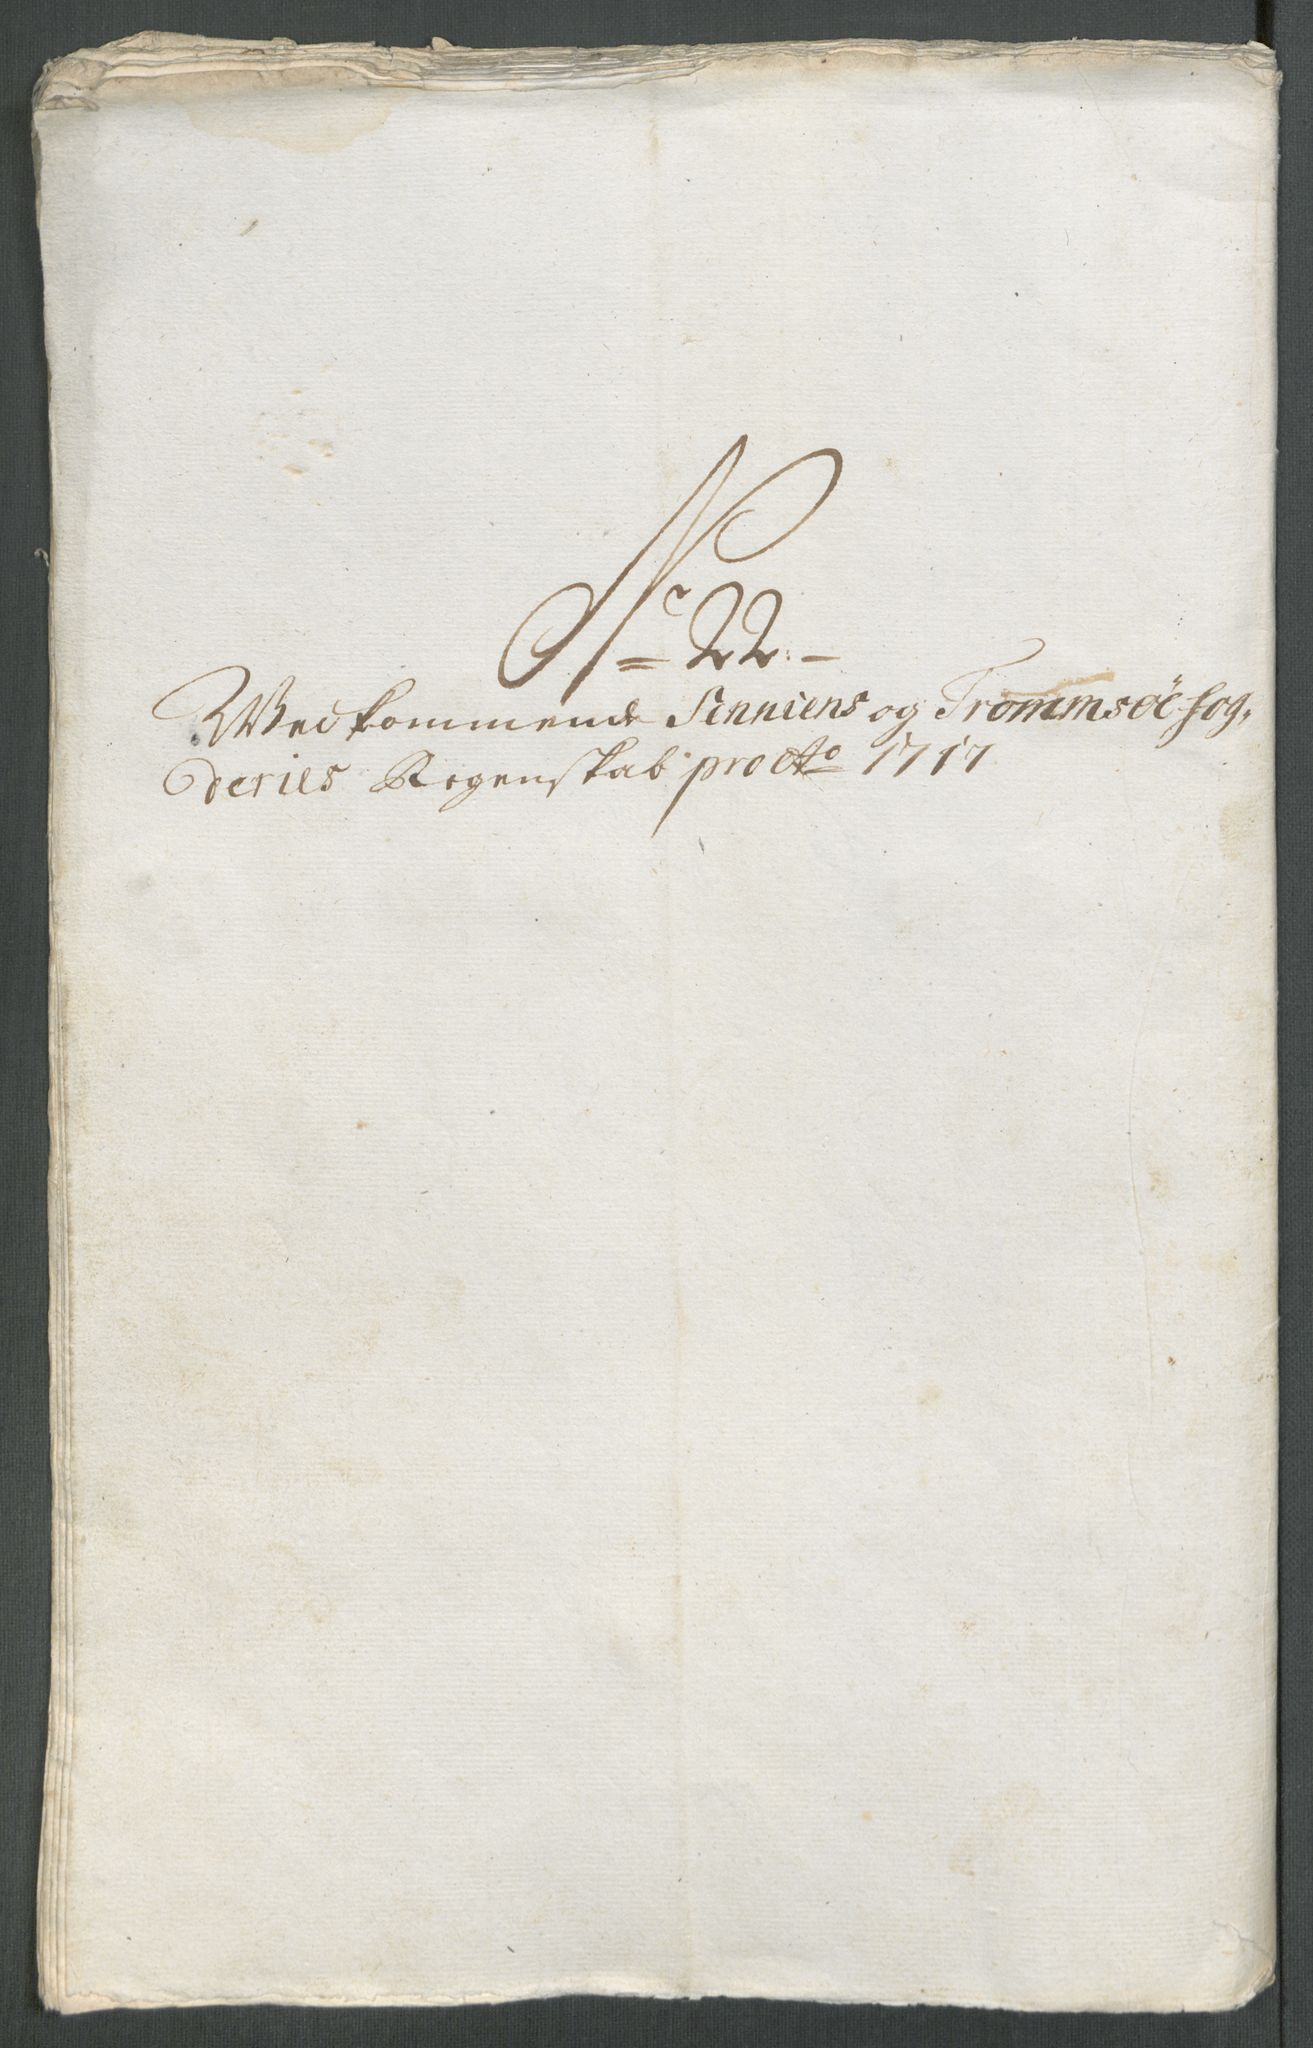 No 22.
Vedkommende Senniens og Trommsöe fog,
deries Regenskab pro Ao 1717